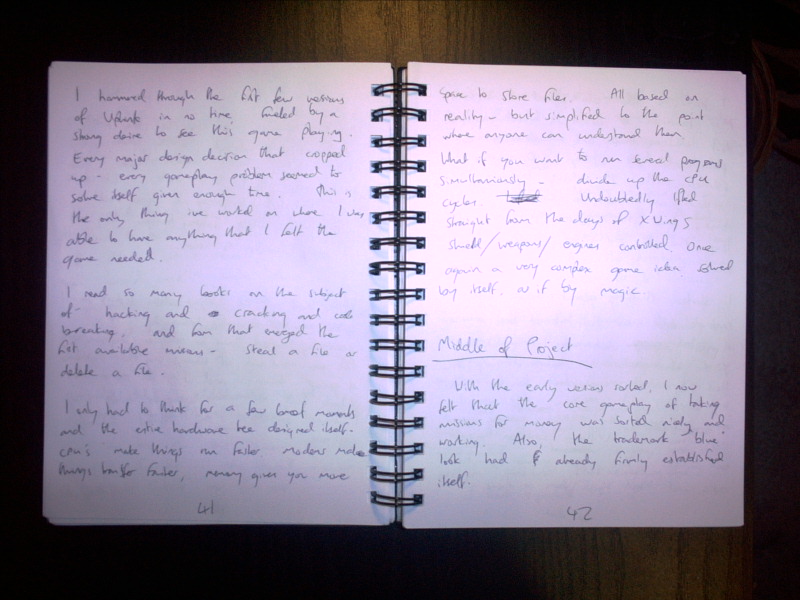 I hammered through the first few versions
of Uplink in no time, fueled by a
strong desire to see this game playing.
Every major design decision that cropped
up - every gameplay problem seemed to
solve itself given enough time. This is
the only thing ive worked on where I was
able to have anything that I felt the
game needed.
I read so many books on the subject
of hacking and cracking and code
breaking, and from that emerged the
first available missions - Steal a file or
delete a file.
I only had to think for a few brief moments
and the entire hardware tree designed itself-
cpu's make things run faster. Modems make
things transfer faster, memory gives you more
41
space to store files. All based on
reality - but simplified to the point
where anyone can understand them.
What if you want to run several programs
simultaniously - divide up the CPU
cycles. Undoubtedly lifted
straight from the days of X Wings
shield/weapons/engines controlled. Once
again a very complex game idea solved
by itself, as if by magic.
Middle of Project
With the early versions sorted, I now
felt that the core gameplay of taking
missions for money was sorted nicely and
working. Also, the trademark 'blue'
look had already firmly established
itself.
42